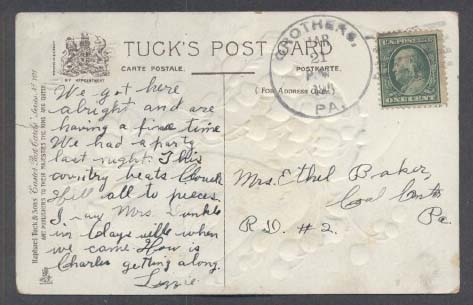 TUCK'S POST CARD
CARTE POSTALE.
POSTKARTE.
BY APPOINTMENT
(FOR ADDRESS ONLY.)
CROTHERS,
MAR
21
PA.
U.S. POSTAGE
ONE CENT
Raphael Tuck & Sons' "Easter Post Cards" Series No.
ART PUBLISHERS TO THEIR MAJESTIES THE KING AND QUEEN
We got here
alright and are
having a fine time
We had a party
last night. This
country beats
all to pieces.
I saw Mrs.
in when
we came. How is
Charles getting along.
Lizzie
Mrs. Ethel Baker,
Coal
Pa.
R.D. #2.